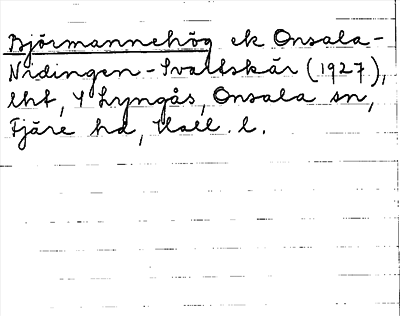 Björmannehög ek Onsala-
Nidingen-Svartskär (1927),
lht, Y Lyngås, Onsala sn,
Fjäre hd, Hall. l.